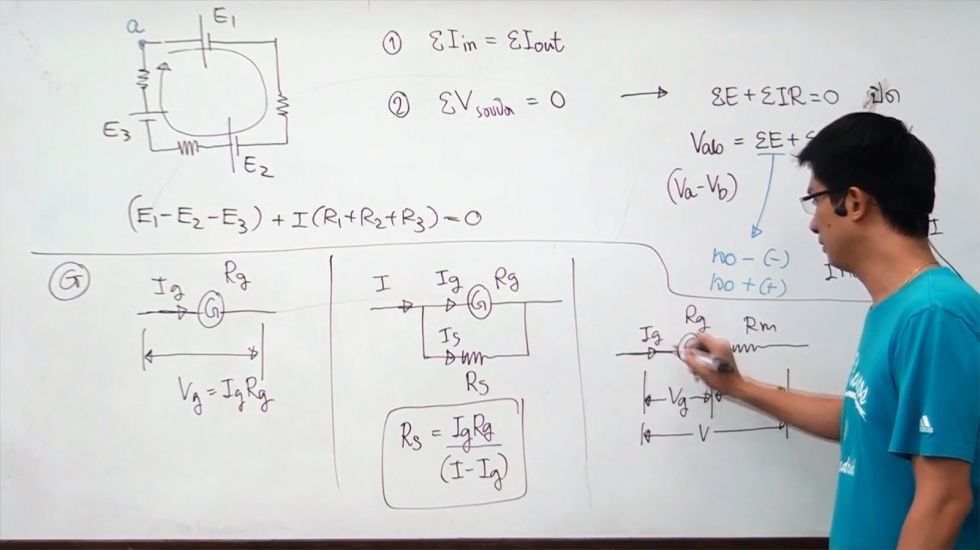 a
E₁
E₃
E₂
① ΣIin = ΣIout
② ΣVรอบปิด = 0
→ ΣE + ΣIR = 0 ปิด
Vab = ΣE +
(Va-Vb)
เจอ - (-)
เจอ + (+)
I
(E₁-E₂-E₃) + I(R₁+R₂+R₃) = 0
G
Ig
Rg
G
Vg = IgRg
I
Ig
Rg
G
Is
Rs
Rs = IgRg
(I-Ig)
Ig
Rg
Rm
Vg
V
adidas